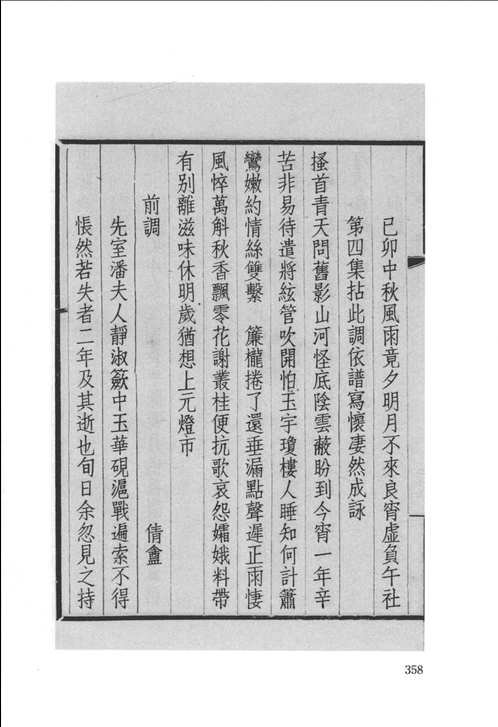 己卯中秋風雨竟夕明月不來良宵虛負午社
第四集拈此調依譜寫懷凄然成詠
搔首青天問舊影山河怪底陰雲蔽盼到今宵一年辛
苦非易待遣將絃管吹開怕玉宇瓊樓人睡知何計簫
鸞嫩約情絲雙繫　簾櫳捲了還垂漏點聲遲正雨悽
風悴萬斛秋香飄零花謝叢桂便抗歌哀怨孀娥料帶
有別離滋味休明歲猶想上元燈市
前調　倩盦
先室潘夫人靜淑簌中玉華硯滬戰遍索不得
悵然若失者二年及其逝也旬日余忽見之持
358